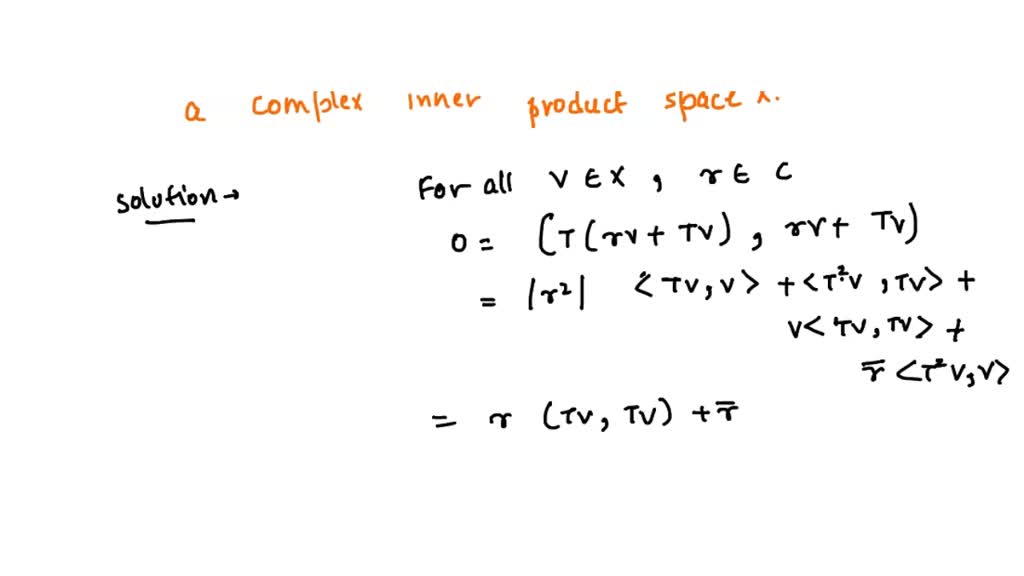 a complex inner product space x.
solution→
For all v ∈ X, r ∈ C
0 = (T(rv + Tv), rv + Tv)
= |r²| <Tv, v> + <T²v, Tv> +
v<Tv, Tv> +
r̅ <T²v, v>
= r (Tv, Tv) + r̅